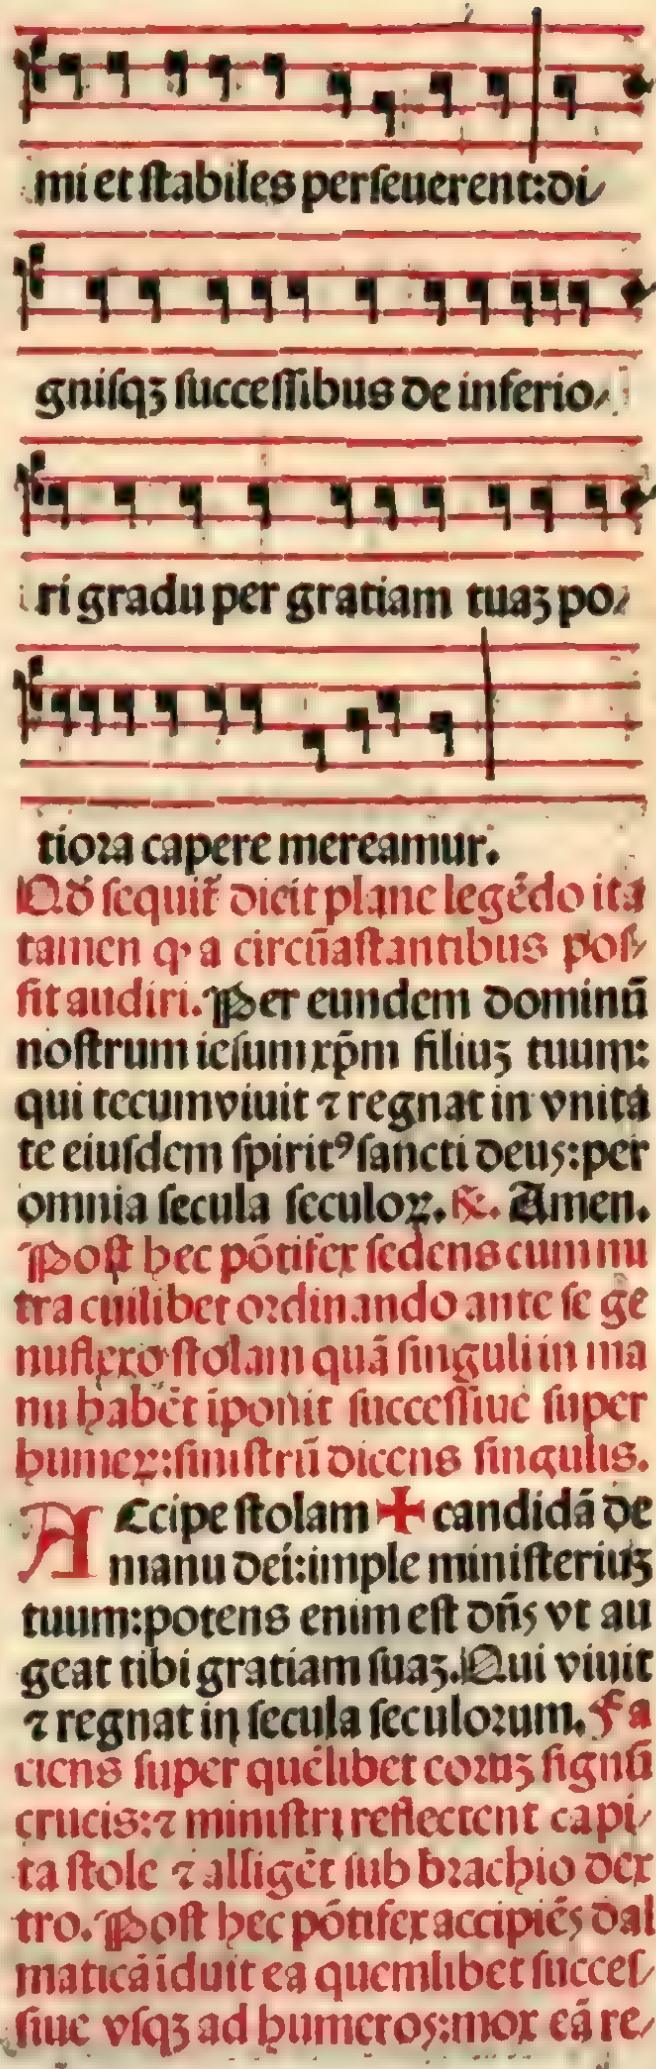 mi et stabiles perseuerent:di⸗
gnisqꝫ successibus de inferio⸗
ri gradu per gratiam tuaꝫ po⸗
tiora capere mereamur.
Qđ sequit̃ dicit plane legẽdo ita
tamen ꝙ a circũastantibus pos⸗
sit audiri. Per eundem dominũ
nostrum iesum xp̃m filiuꝫ tuum:
qui tecum viuit ⁊ regnat in vnita
te eiusdem spiritꝰ sancti deus:per
omnia secula seculoꝝ. ℟. Amen.
Post hec põtifex sedens cum mi
tra cuilibet ordinando ante se ge
nuflexo stolam quã singuli in ma
nu habẽt ĩponit successiue super
humeꝝ:sinistrũ dicens singulis.
Accipe stolam ✠ candidã de
manu dei:imple ministeriuꝫ
tuum:potens enim est dñs vt au
geat tibi gratiam suaꝫ. Qui viuit
⁊ regnat in secula seculorum. Fa
ciens super quẽlibet eoruꝫ signũ
crucis:⁊ ministri reflectent capi⸗
ta stole ⁊ alligẽt sub brachio dex
tro. Post hec põtifex accipiẽs dal
maticã ĩduit ea quemlibet succes⸗
siue vsqꝫ ad humeros:mox eã re⸗